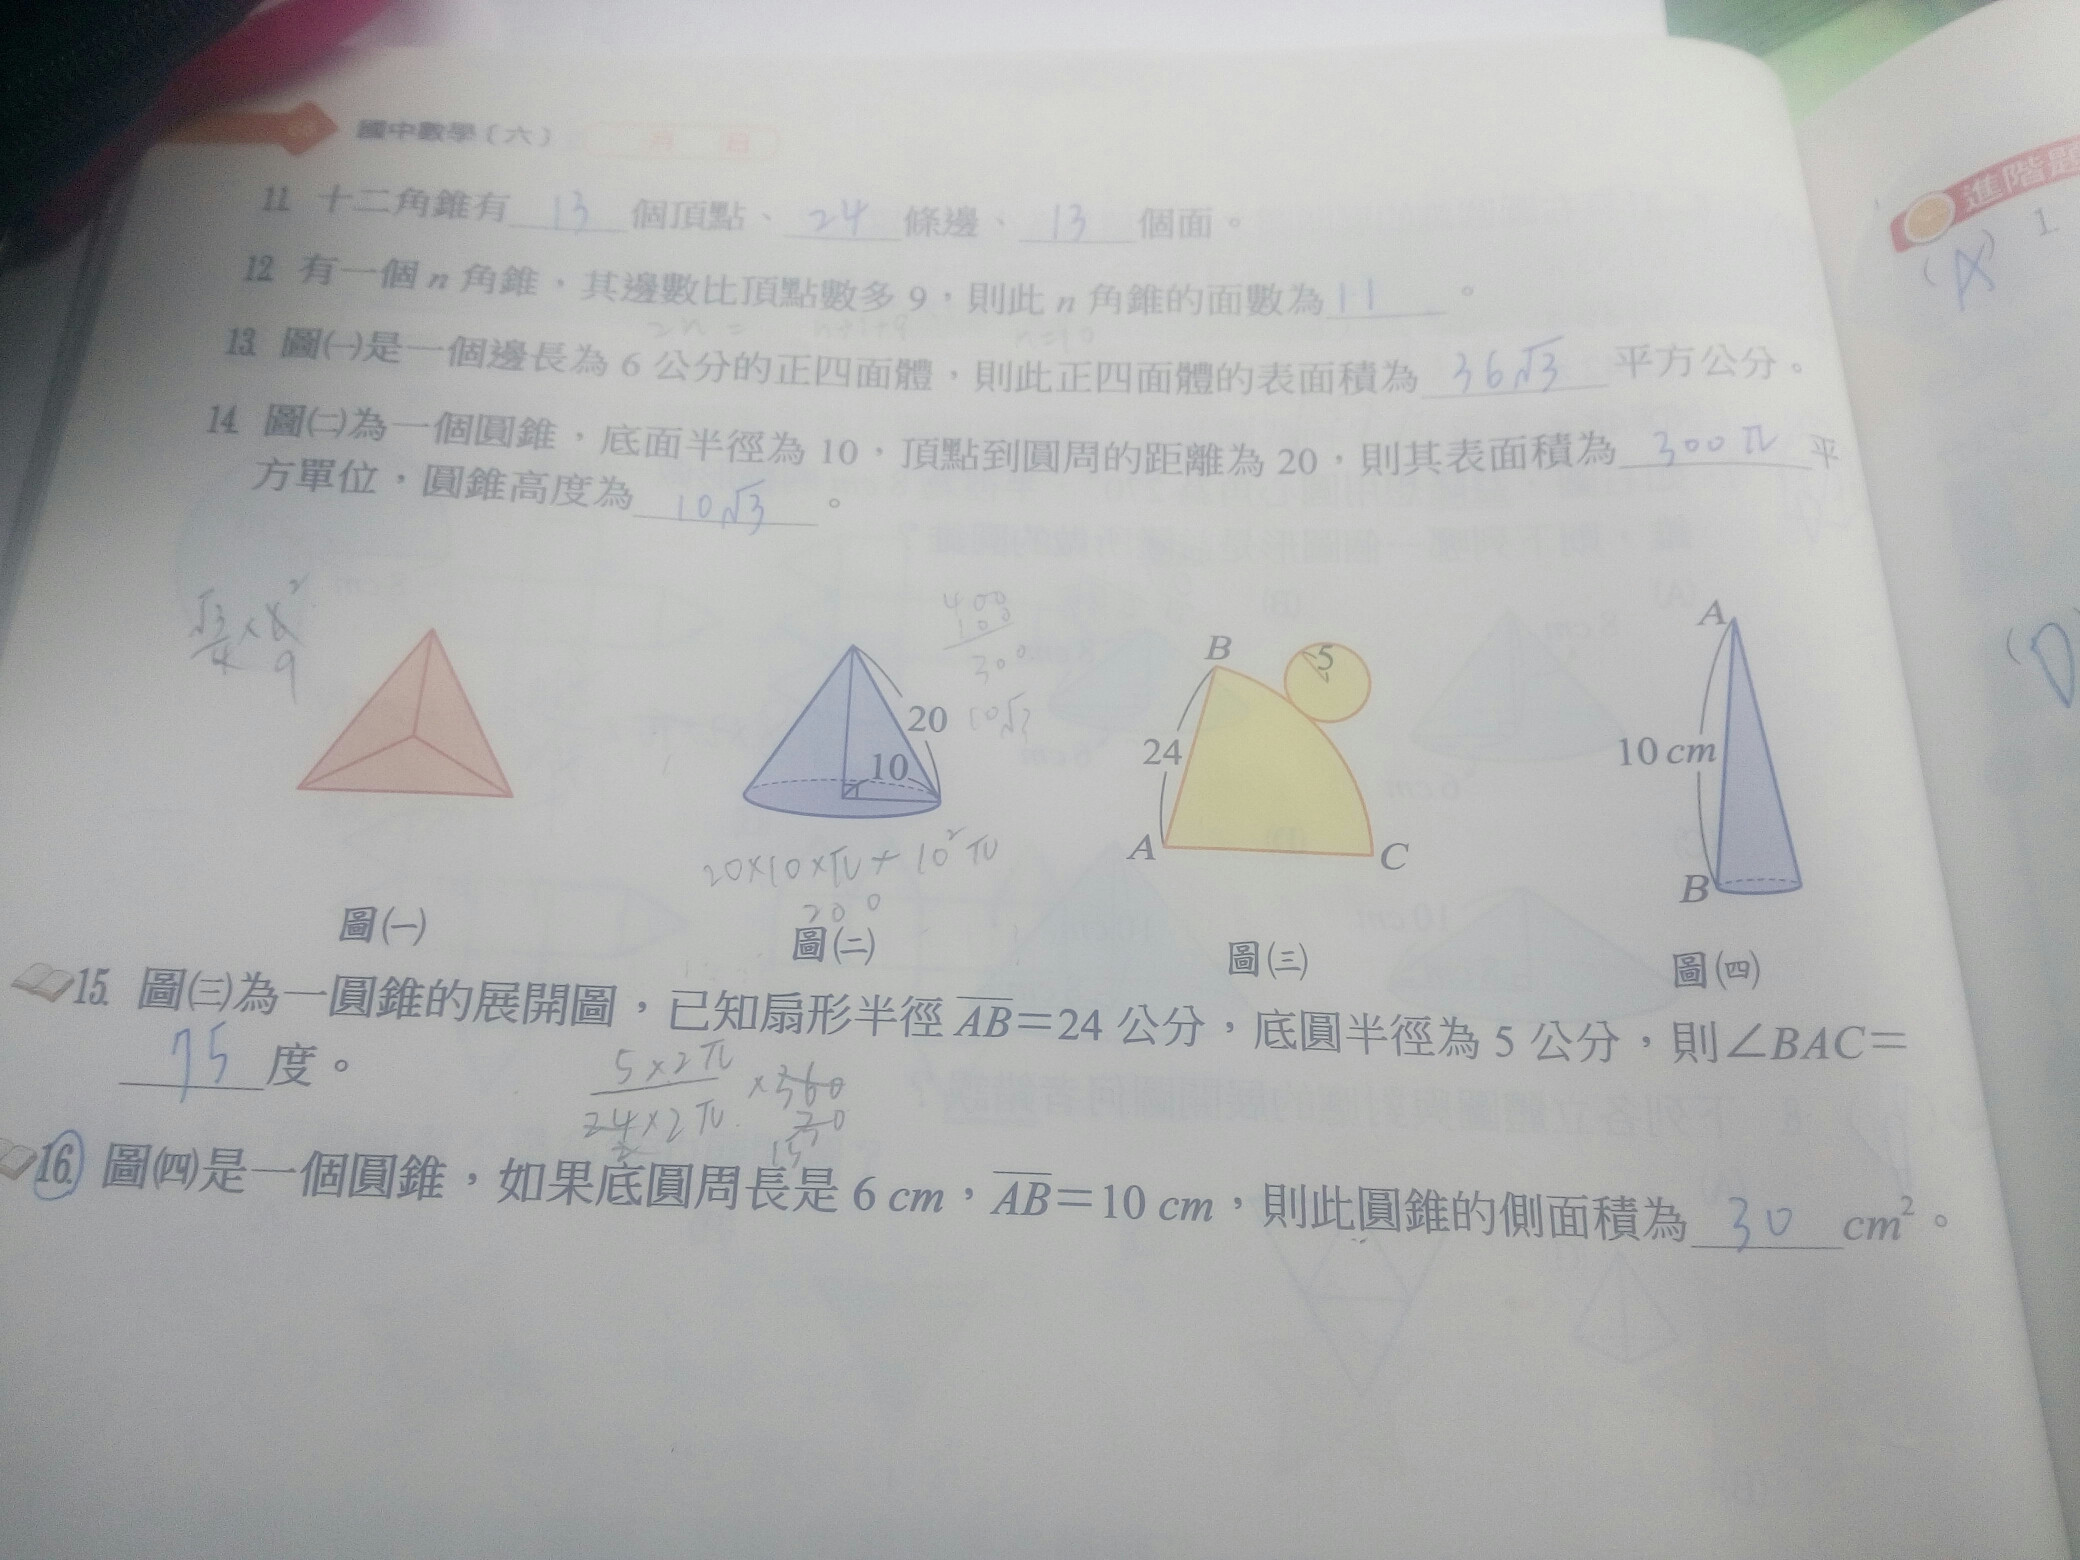 國中數學(六)
進階題
1.
(A)
11. 十二角錐有 13 個頂點、 24 條邊、 13 個面。
12. 有一個 n 角錐,其邊數比頂點數多 9,則此 n 角錐的面數為 11 。
2n = n+1+9 n=10
13. 圖㈠是一個邊長為 6 公分的正四面體,則此正四面體的表面積為 36√3 平方公分。
14. 圖㈡為一個圓錐,底面半徑為 10,頂點到圓周的距離為 20,則其表面積為 300π 平
方單位,圓錐高度為 10√3 。
400
100
300
10√3
20
10
20×10×π+10²π
200
B
5
24
A
C
A
10 cm
B
(D
圖㈠
圖㈡
圖㈢
圖㈣
15. 圖㈢為一圓錐的展開圖,已知扇形半徑 AB=24 公分,底圓半徑為 5 公分,則∠BAC=
75 度。
5×2π
24×2π ×360
30
2 15
16. 圖㈣是一個圓錐,如果底圓周長是 6 cm,AB=10 cm,則此圓錐的側面積為 30 cm²。